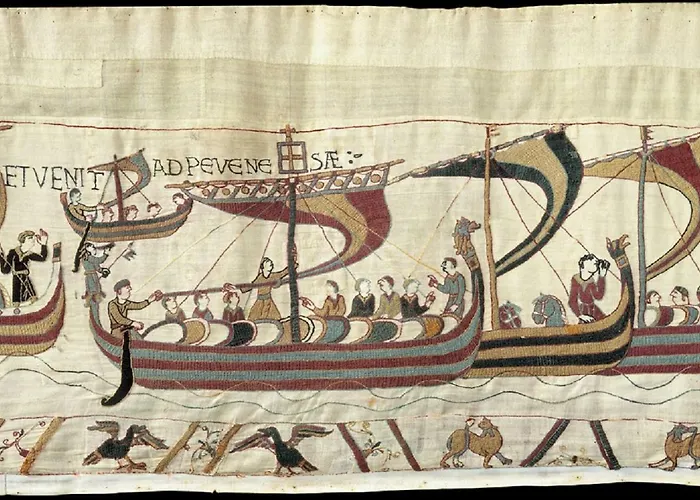 ET VENIT AD PEVENE SÆ :-